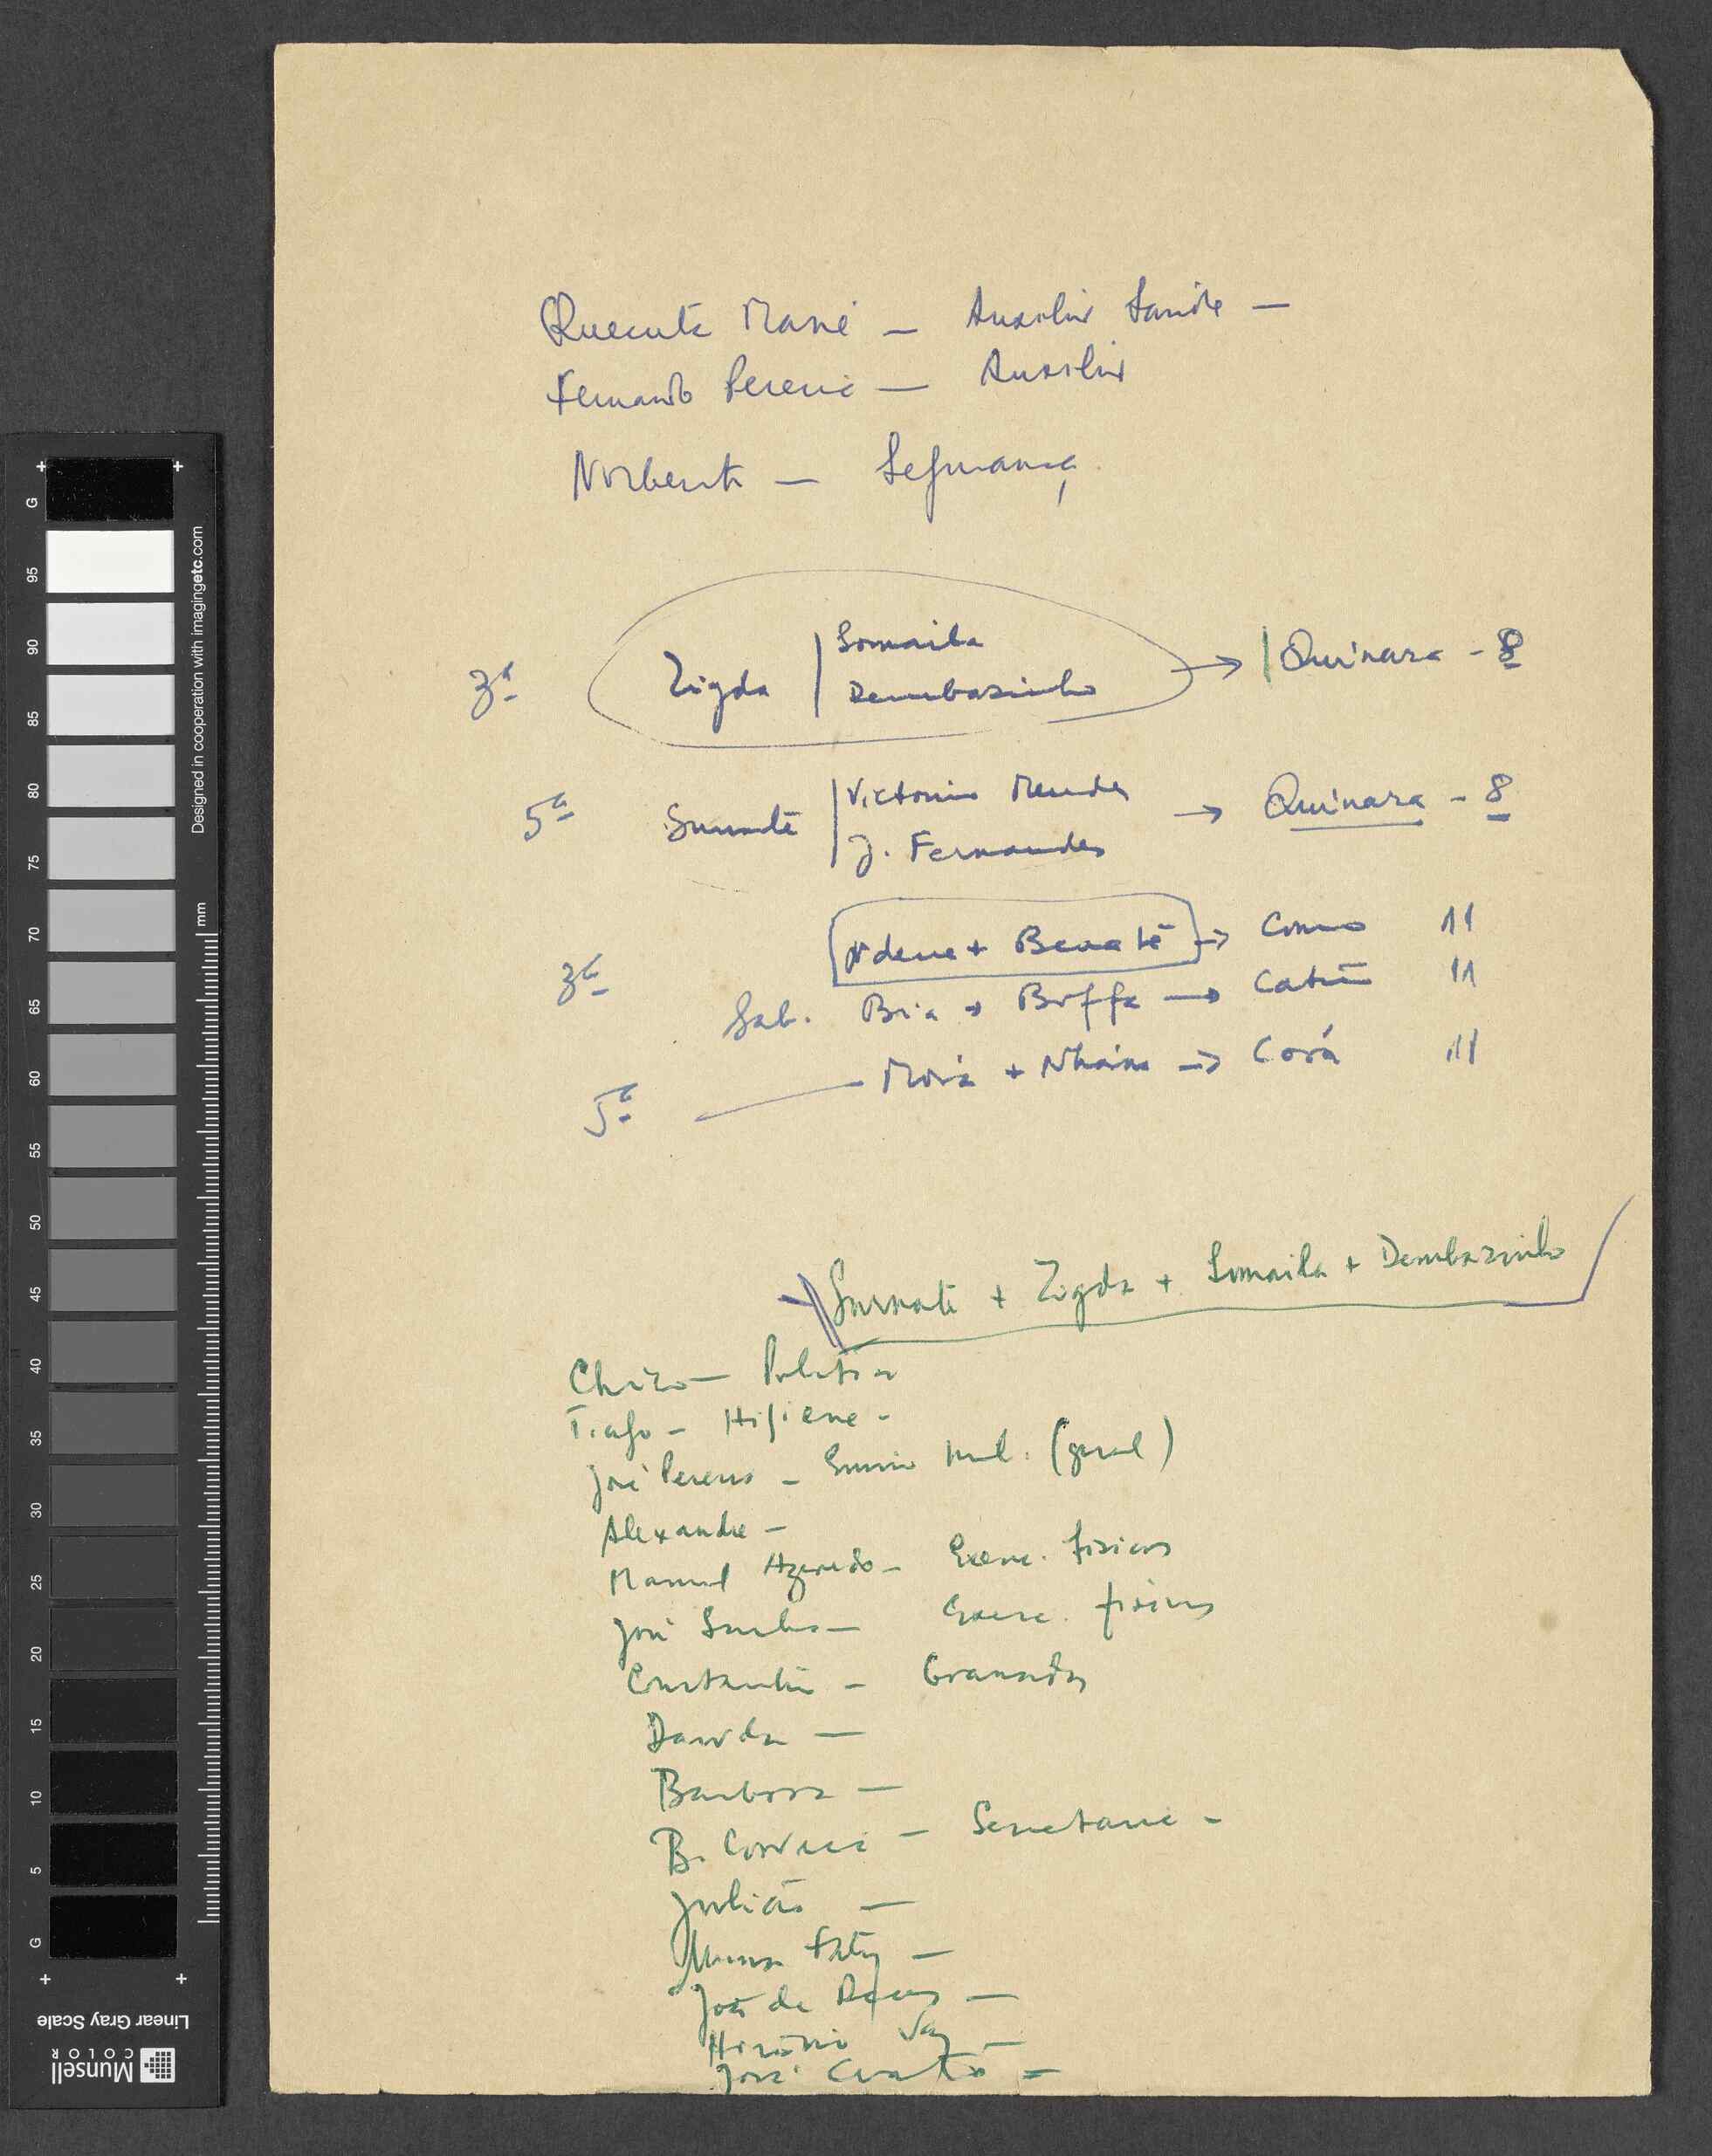 Quecuta Mané — Auxiliar Saúde —
Fernando Pereira — Auxiliar
Norberto — Segurança
3ª Zigda | Somaila Dembazinho → | Quinara - 8
5ª Sumaté | Victorino Mendes J. Fernandes → Quinara - 8
3ª
Ndene + Benaté → Como 11
Sab. Bia + Boffa → Catió 11
5ª — Moriá + Nhaina → Corá 11
Sumaté + Zigda + Somaila + Dembazinho
Chico — Política
Tiago — Higiene -
José Pereira - Ensino Mil. (geral)
Alexandre -
Manuel Azevedo - Exerc. físicos
José Sambu — Exerc. físicos
Constantino - Granadas
Dauda —
Barbosa —
B. Correia - Secretaria -
Julião —
Mussa Faty —
João de Deus —
Hirónio Vaz —
José
G
95
90
85
80
75
70
65
60
55
50
45
40
35
30
25
20
15
10
5
G
mm
Designed in cooperation with imagingetc.com
Linear Gray Scale
Munsell
COLOR